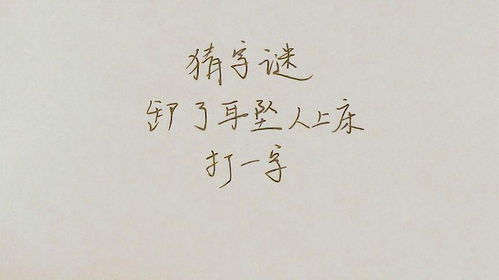 猜字谜
卸了耳坠人上床
打一字